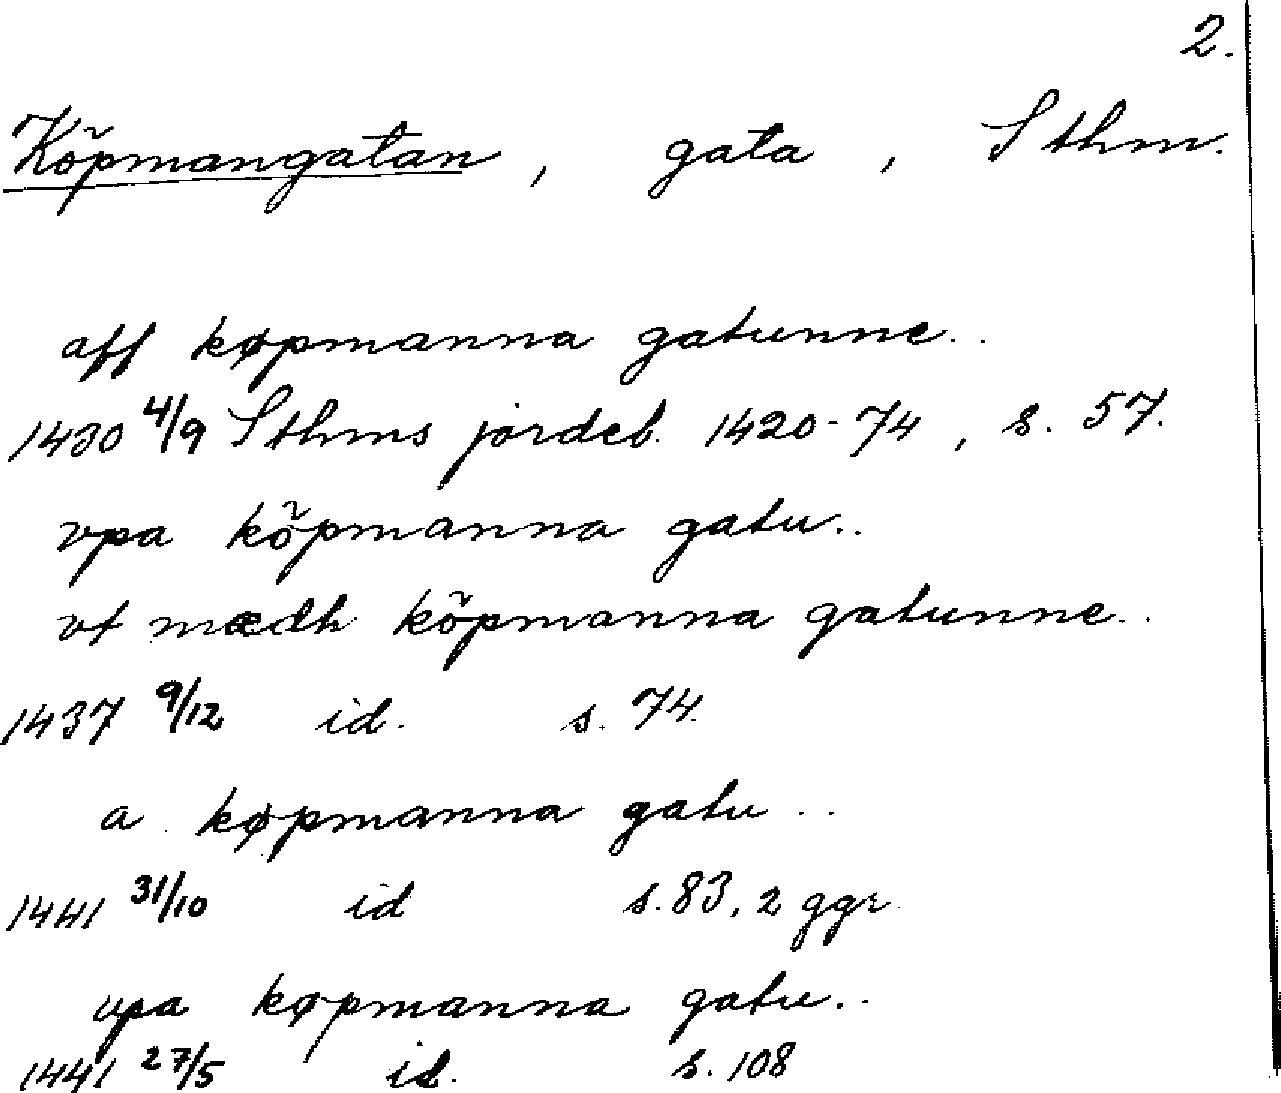 2.
Köpmangatan, gata, Sthm.
aff køpmanna gatunne..
1430 4/9 Sthms jordeb. 1420-74, s. 57.
vpa köpmanna gatu..
vt mædh köpmanna gatunne..
1437 9/12 id. s. 74.
a køpmanna gatu ..
1441 31/10 id s. 83, 2 ggr.
vpa køpmanna gatu..
1441 27/5 id. s. 108